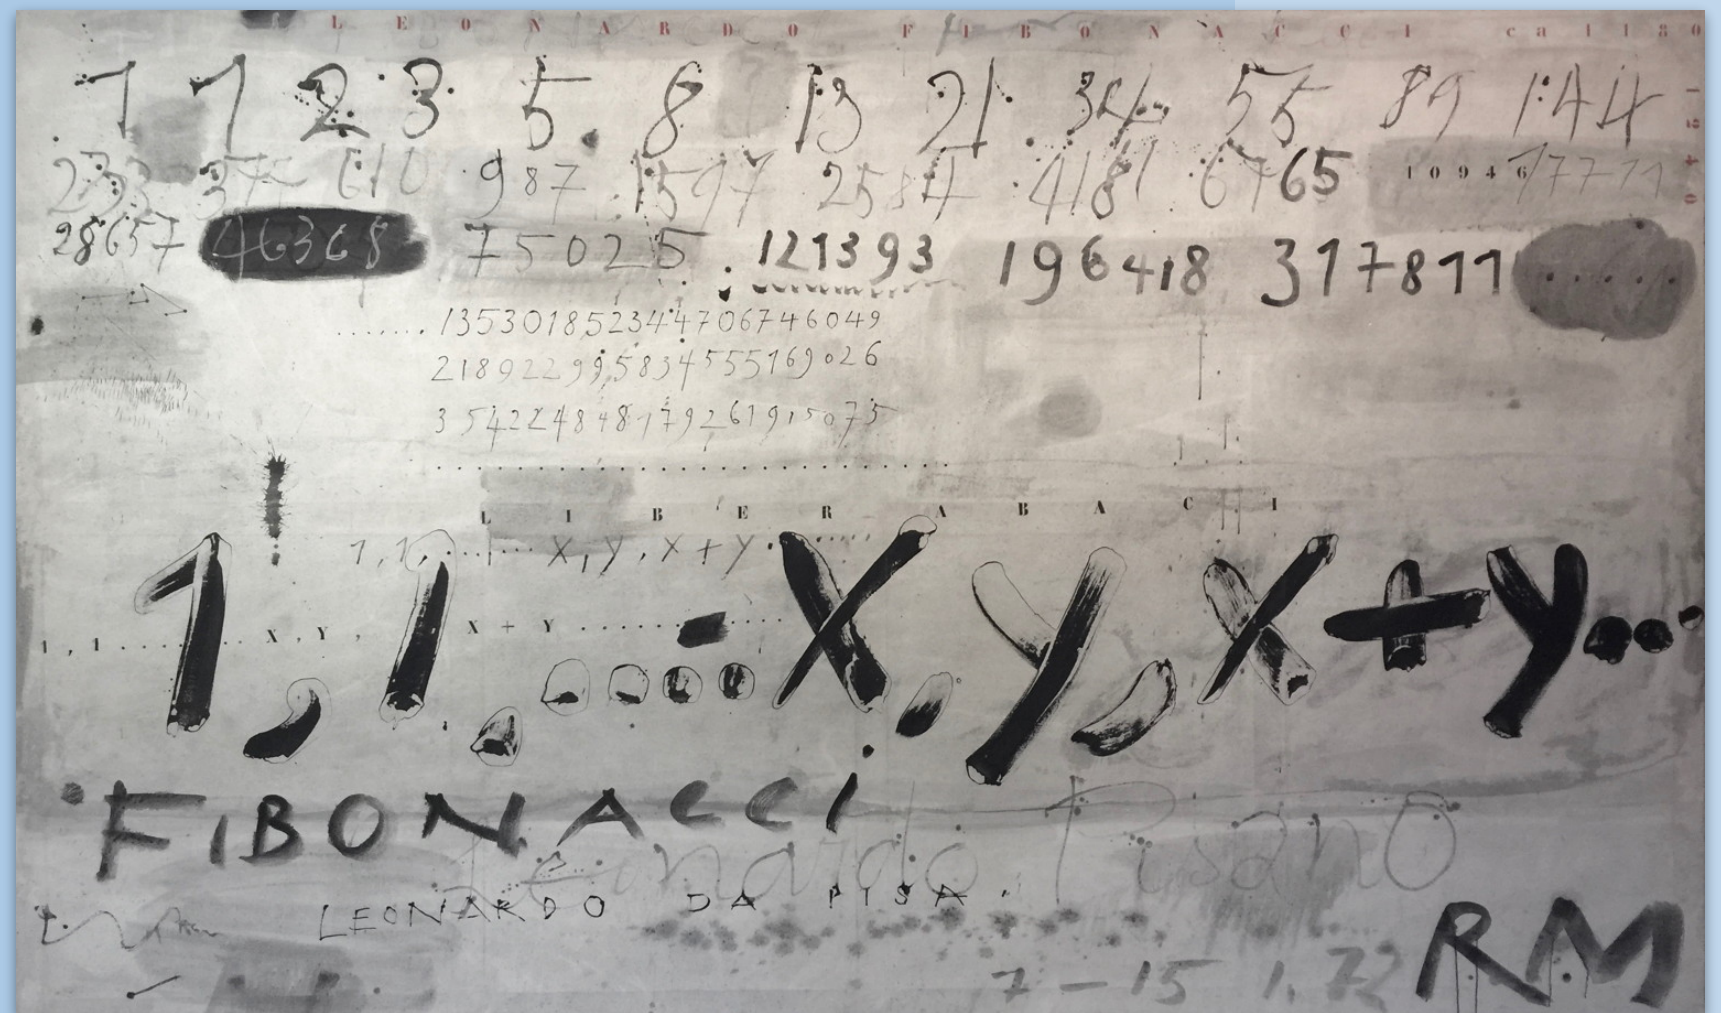 LEONARDO FIBONACCI ca 1180
1240
1 1 2 3 5 8 13 21 34 55 89 144
233 377 610 987 1597 2584 4181 6765 10946 17711
28657 46368 75025 121393 196418 317811 .....
.......135301852344706746049
218922995834555169026
354224848179261915075
LIBER ABACI
1,1,........x,y,x+y.......
1,1........x,y, x+y..............
1,1,....x,y,x+y...
FIBONACCI
Leonardo Pisano
LEONARDO DA PISA.
7-15 1.72
RM